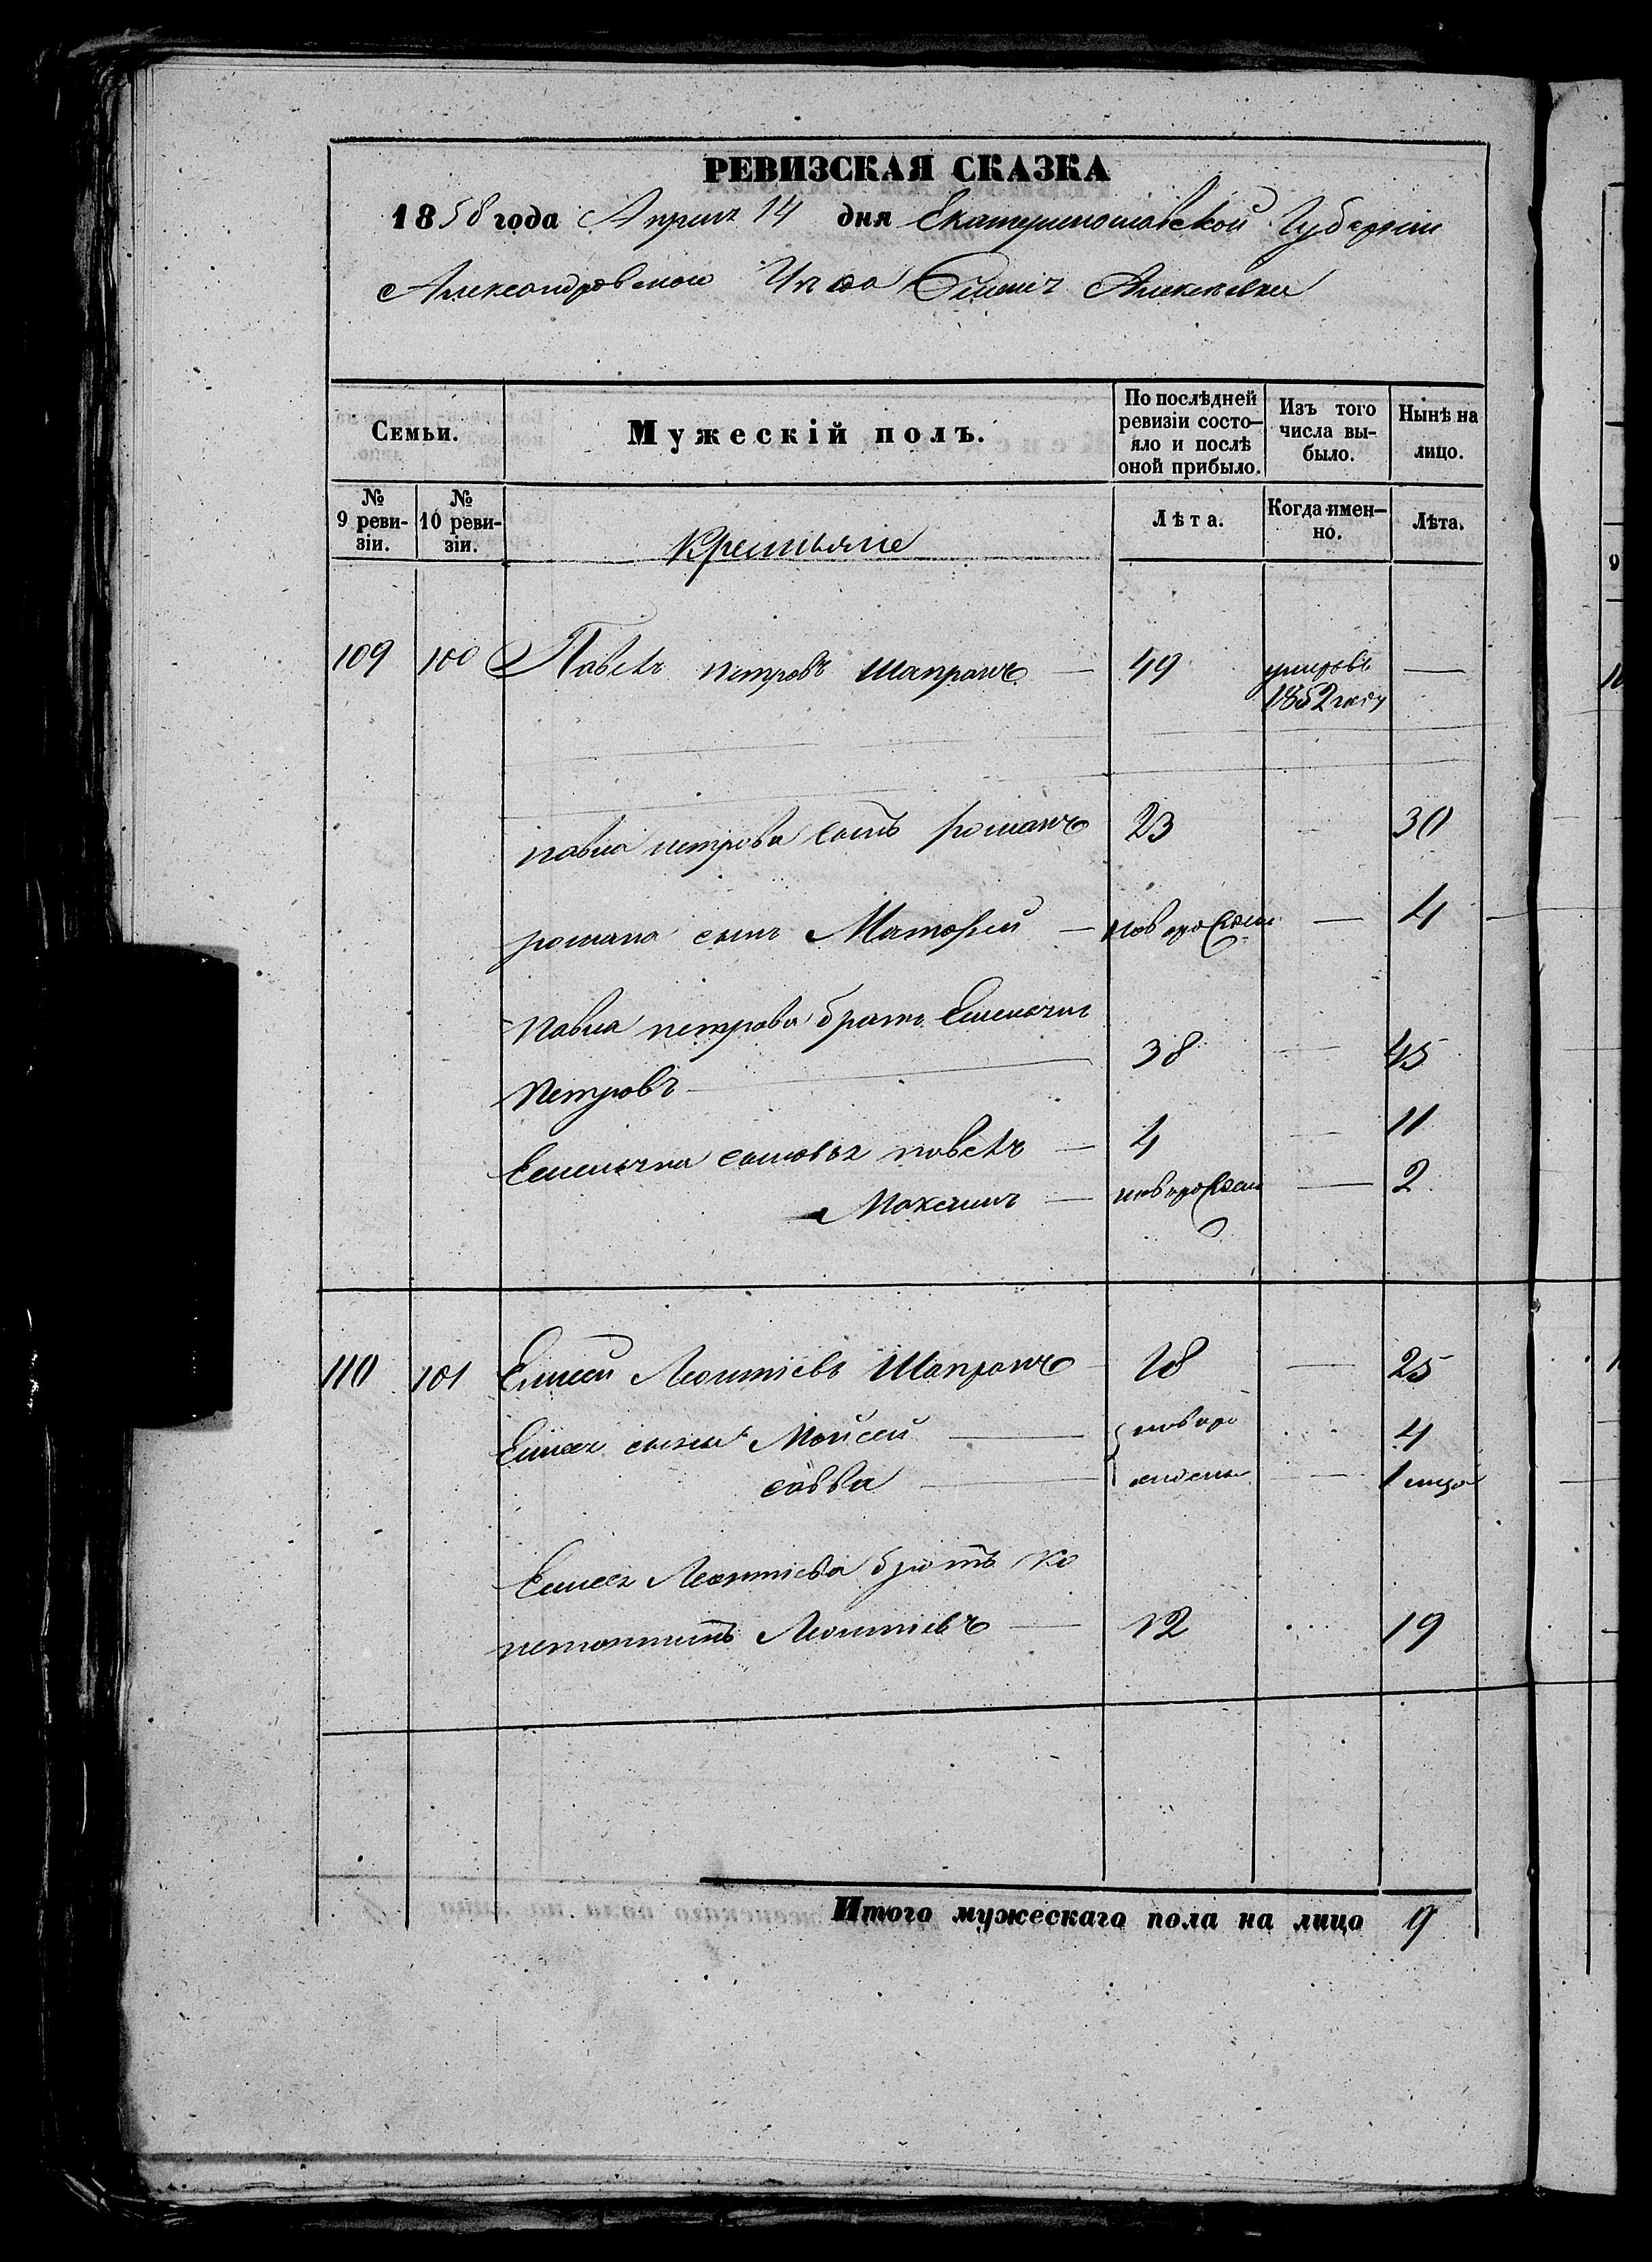 РЕВИЗСКАЯ СКАЗКА
1858 года Апреля 14 дня Екатеринославской Губернии
Александровского Уезда Алексеевки
Семьи.
Мужескій полъ.
По послѣдней ревизіи состояло и послѣ оной прибыло.
Изъ того числа выбыло.
Нынѣ на лицо.
№ 9 ревизіи.
№ 10 ревизіи.
Крестьяне
Лѣта.
Когда именно.
Лѣта.
109 100 Павелъ петровъ Шапранъ — 49 умеръ въ 1852 году —
павла петрова сынъ романъ 23 30
романа сынъ Матфей — новорожден — 4
Павла петрова братъ Емельянъ
Петровъ — 38 — 45
Емельяна сыновья павелъ — 4 — 11
Максимъ — новорожден — 2
110 101 Елисей Леонтіевъ Шапранъ 18 — 25
Елисея сыны Мойсей — новоро 4
савва — жденые — 1 
Елисея Леонтіева братъ Ка
питонъ Леонтіевъ — 12 19
Итого мужескаго пола на лицо 9